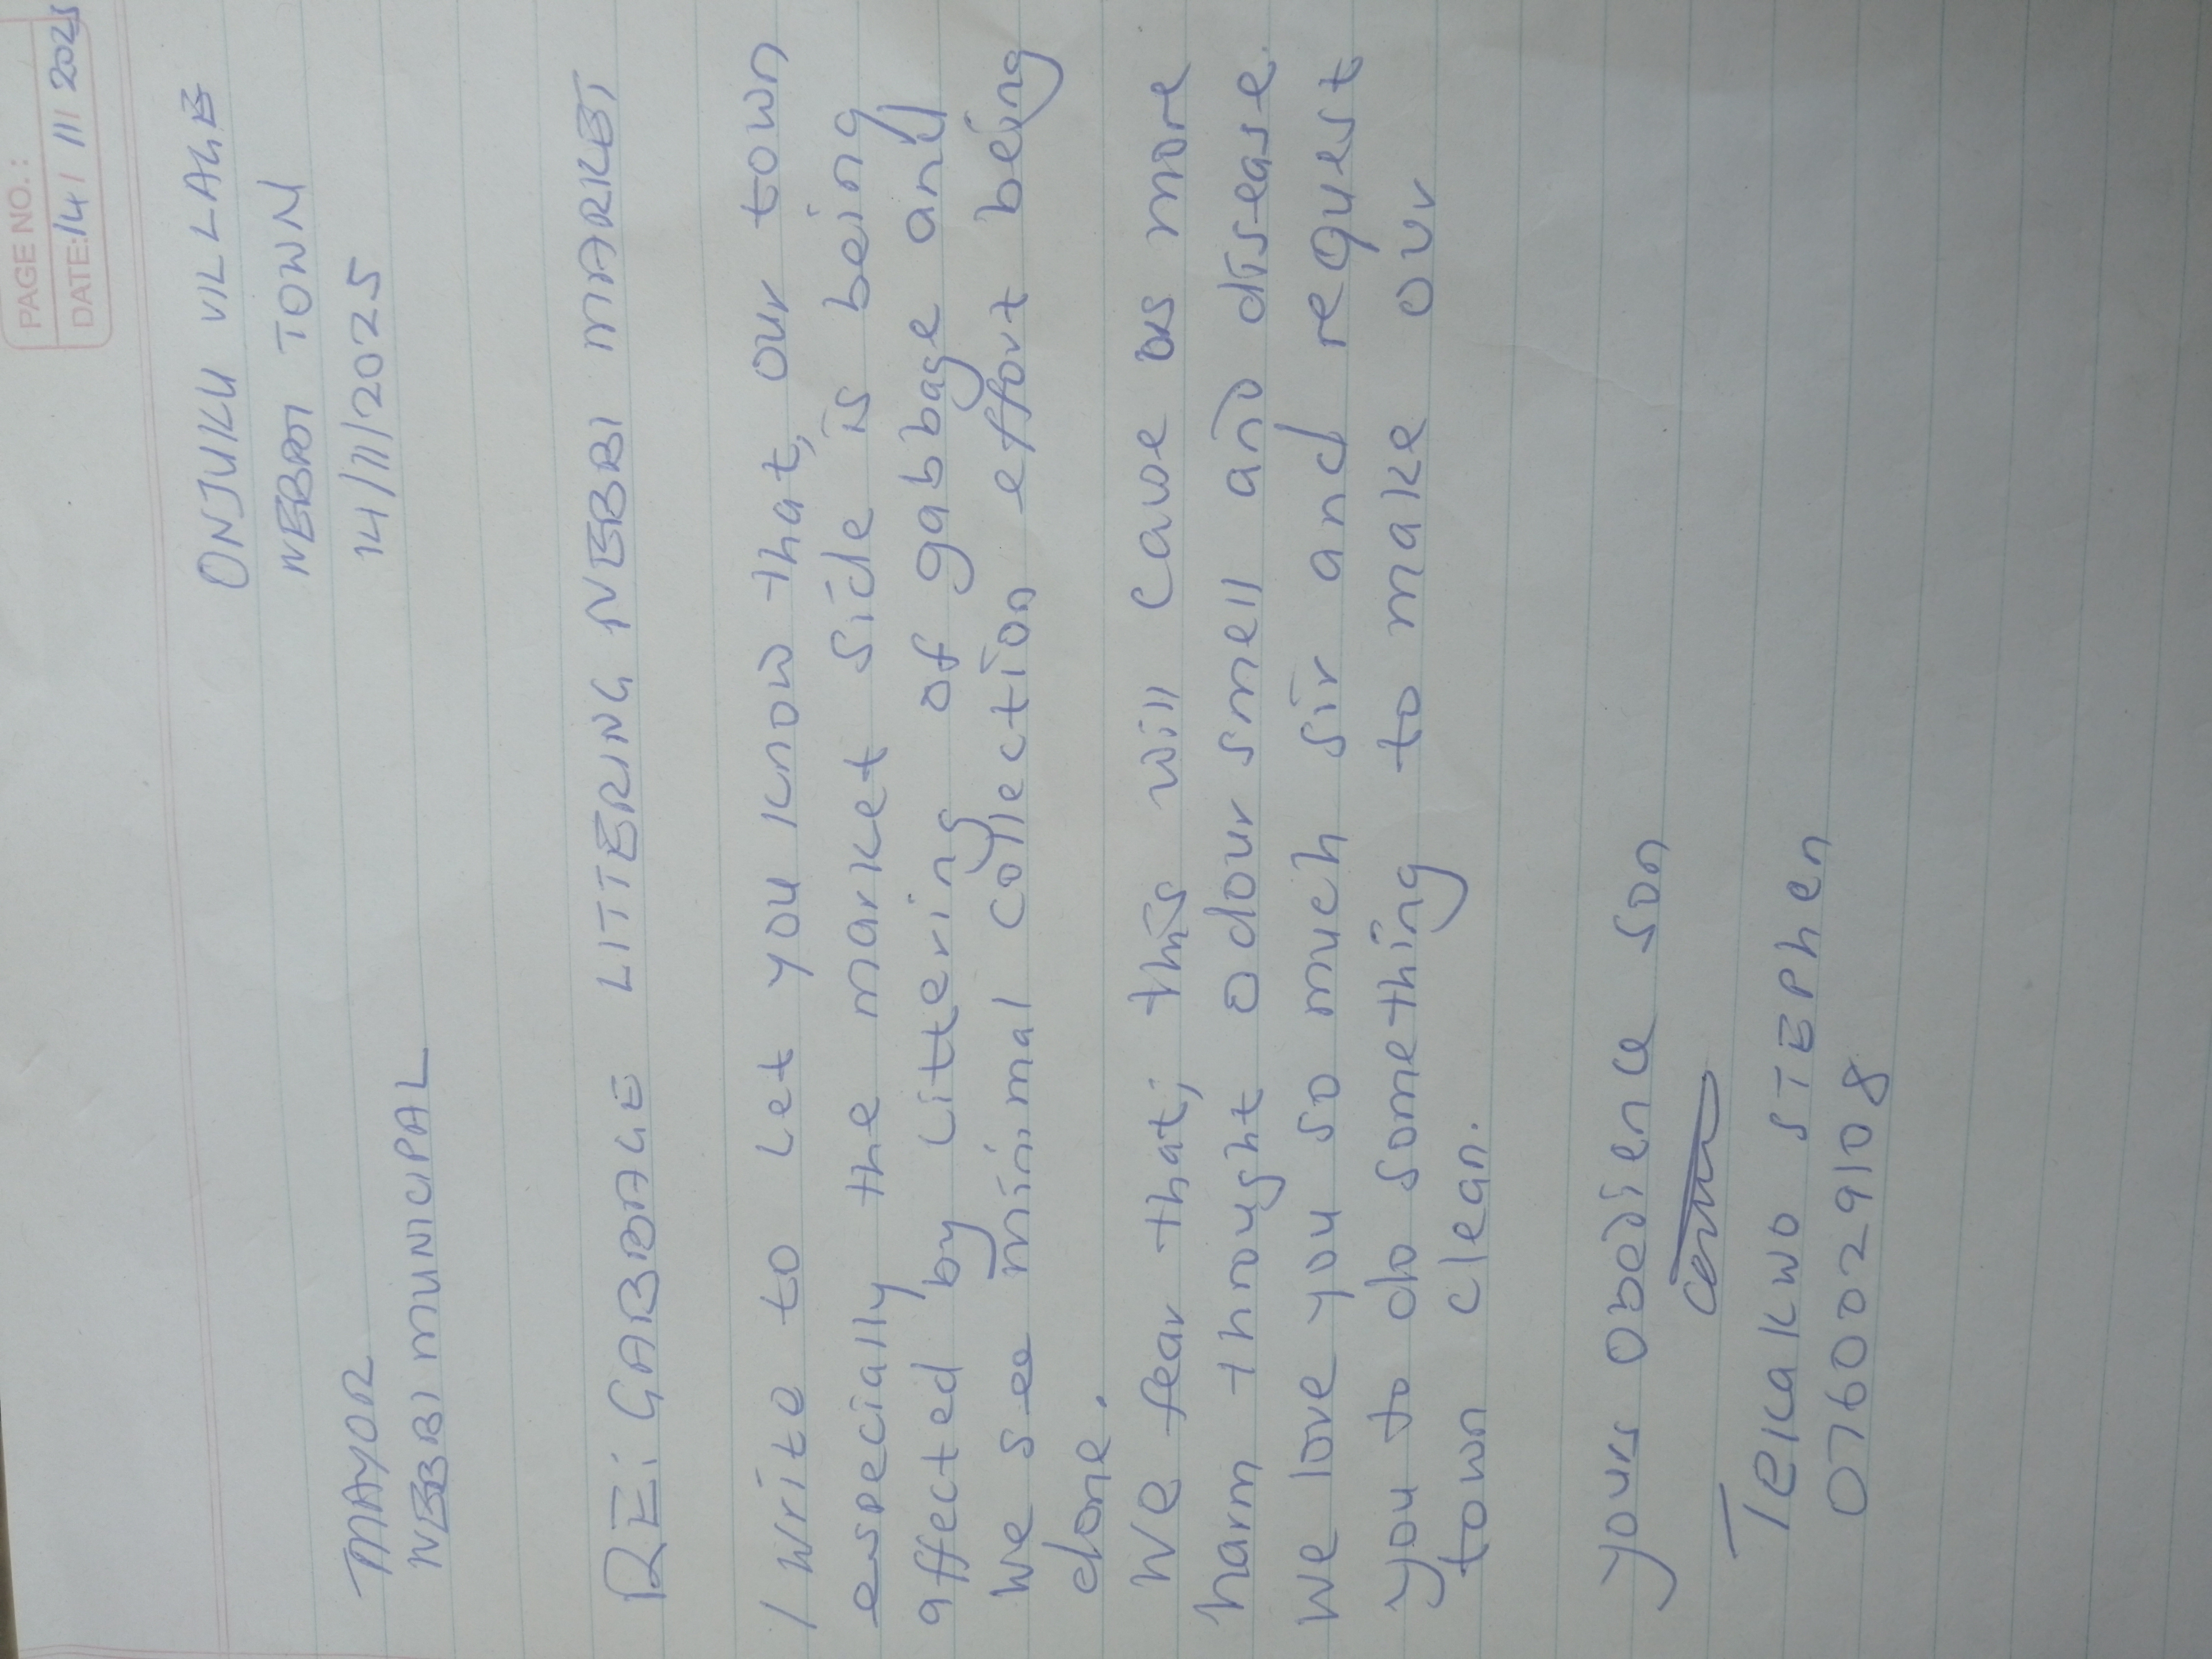 PAGE NO.:
DATE: 14 / 11 / 2025
ONJUKU VILLAGE
NEBBI TOWN
14/11/2025
MAYOR
NEBBI MUNICIPAL
RE: GABBAGE LITTERING NEBBI MARKET
I write to let you know that, our town
especially the market side is being
affected by littering of gabbage and
we see minimal collection effort being
done.
We fear that; this will cause us more
harm throught odour smell and disease.
We love you so much sir and request
you to do something to make our
town clean.
yours obedience son
Teikakwo STEPhen
0760029108